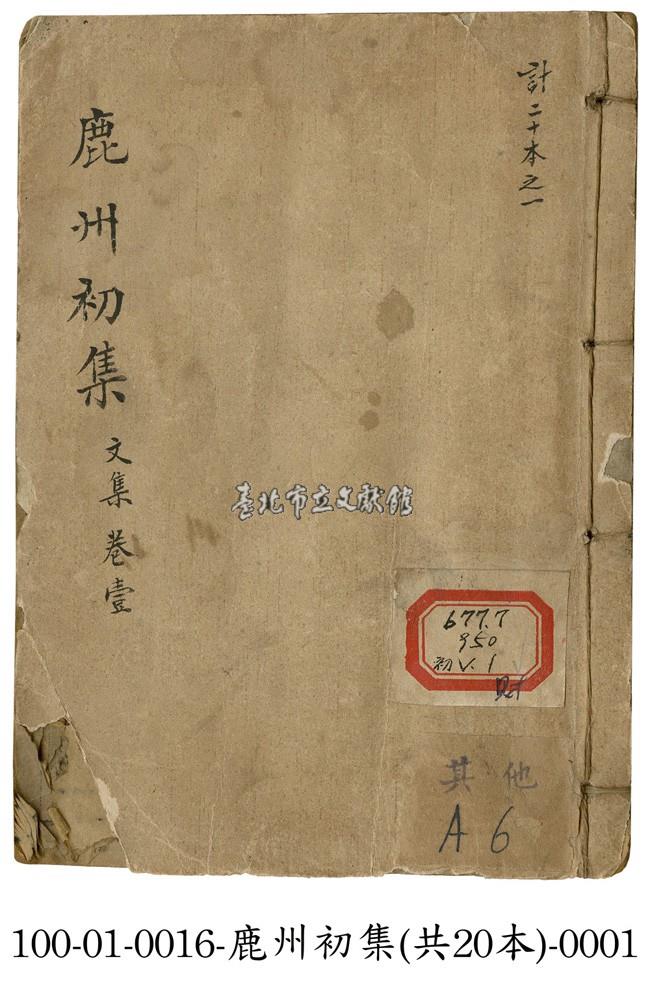 計二十本之一
鹿州初集
文集 卷壹
臺北市立文獻館
677.7
950
初V.1
財
其他
A6
100-01-0016-鹿州初集(共20本)-0001